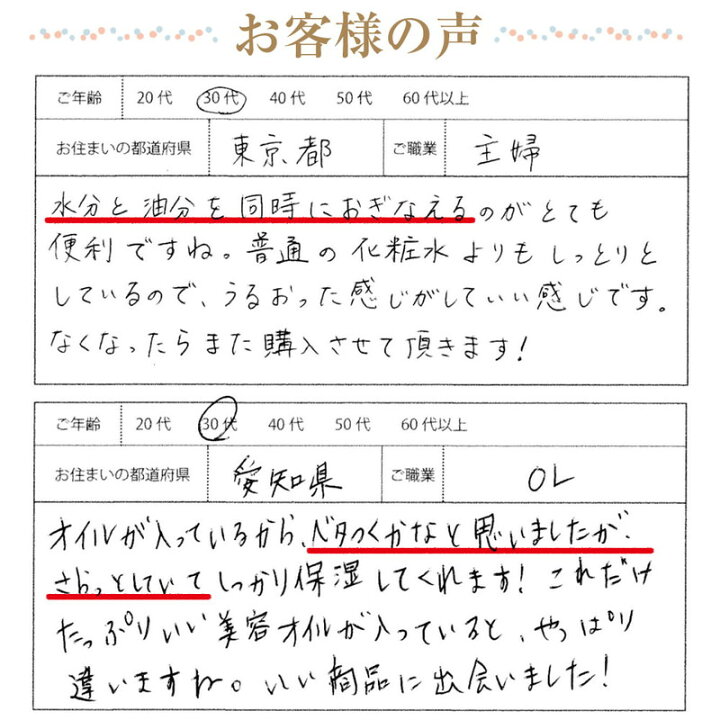 お客様の声
ご年齢 20代 30代 40代 50代 60代以上
お住まいの都道府県 東京都 ご職業 主婦
水分と油分を同時におぎなえるのがとても
便利ですね。普通の化粧水よりもしっとりと
しているので、うるおった感じがしていい感じです。
なくなったらまた購入させて頂きます!
ご年齢 20代 30代 40代 50代 60代以上
お住まいの都道府県 愛知県 ご職業 OL
オイルが入っているから、ベタつくかなと思いましたが、
さらっとしていてしっかり保湿してくれます!これだけ
たっぷりいい美容オイルが入っていると、やっぱり
違いますね。いい商品に出会いました!